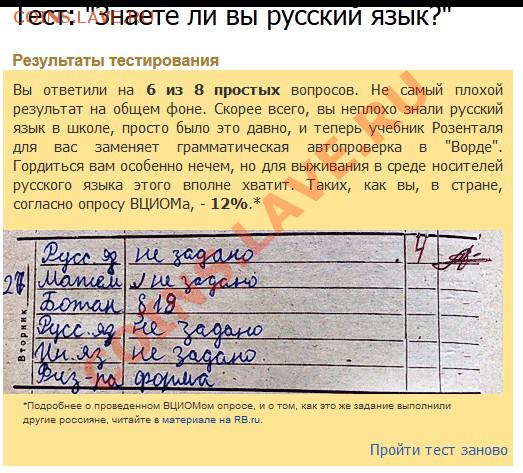 Тест: "Знаете ли вы русский язык?"
COINS.LAVE.RU
Результаты тестирования
Вы ответили на 6 из 8 простых вопросов. Не самый плохой
результат на общем фоне. Скорее всего, вы неплохо знали русский
язык в школе, просто было это давно, и теперь учебник Розенталя
для вас заменяет грамматическая автопроверка в "Ворде".
Гордиться вам особенно нечем, но для выживания в среде носителей
русского языка этого вполне хватит. Таких, как вы, в стране,
согласно опросу ВЦИОМа, - 12%.*
COINS.LAVE.RU
Русс. яз не задано 4
Матем не задано
Ботан § 19
Русс. яз. не задано
Ин. яз. не задано
Физ-ра форма
27
Вторник
*Подробнее о проведенном ВЦИОМом опросе, и о том, как это же задание выполнили
другие россияне, читайте в материале на RB.ru.
Пройти тест заново